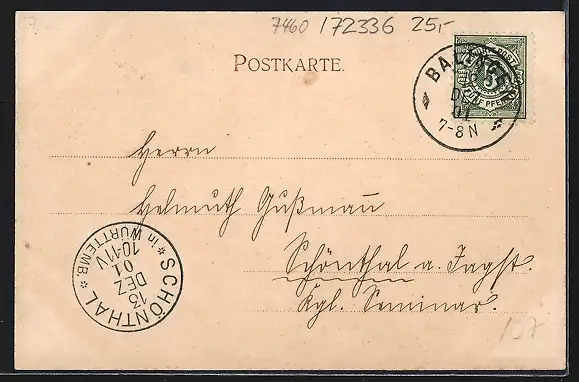 7460 172336 25,-
POSTKARTE.
BALINGEN
DEZ
01
7-8N
FÜNF PFENNIG
Herrn
Helmuth Gußmann
Schönthal a. Jagst.
Kgl. Seminar.
SCHÖNTHAL
in WÜRTTEMB.
10-11V
01
DEZ
13
107